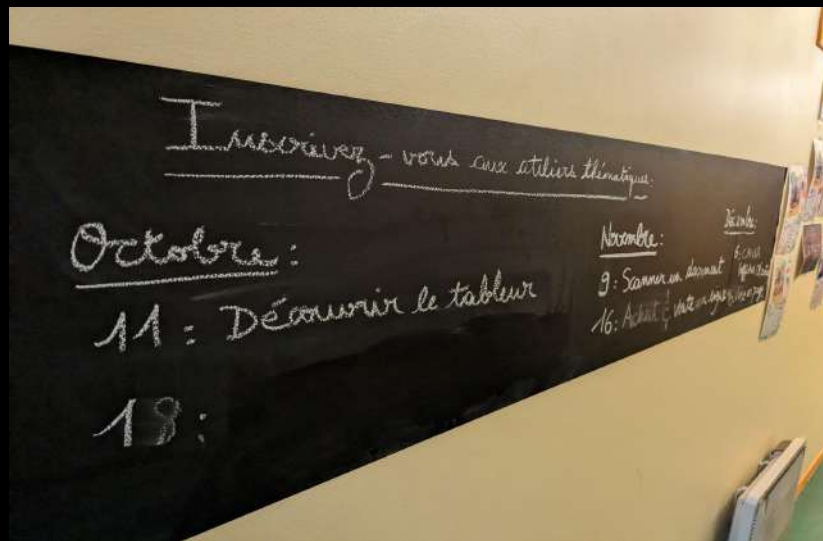 Inscrivez-vous aux ateliers thématiques.
Octobre :
11 : Découvrir le tableur
18 :
Novembre :
9 : Scanner un document
16 : Achat & vente en ligne
Décembre :